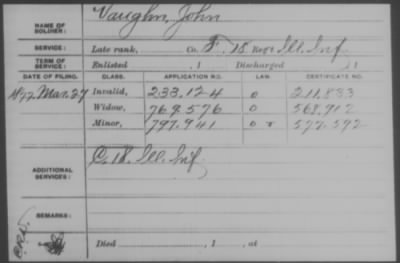 NAME OF SOLDIER: Vaughn, John
SERVICE: Late rank, Co. F, 18 Reg't Ill. Inf.
TERM OF SERVICE: Enlisted , 1 Discharged , 1
DATE OF FILING. CLASS. APPLICATION NO. LAW. CERTIFICATE NO.
1877 Mar. 27 Invalid, 233.124 O 211.833
Widow, 769.576 O 568.912
Minor, 797.941 O r 577.592
ADDITIONAL SERVICES: C. 18. Ill. Inf.
REMARKS:
Died , 1 , at